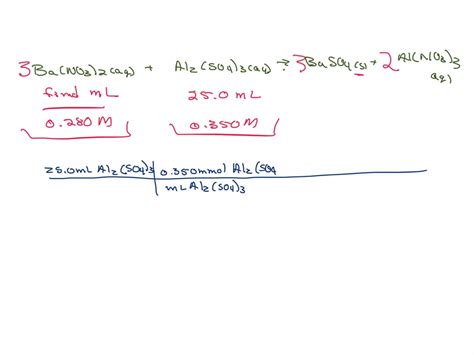 3Ba(NO3)2(aq) + Al2(SO4)3(aq) → 3BaSO4(s) + 2Al(NO3)3 aq)
find mL 25.0 mL
0.280 M 0.350 M
25.0mL Al2(SO4)3 0.350mmol Al2(SO4
mL Al2(SO4)3